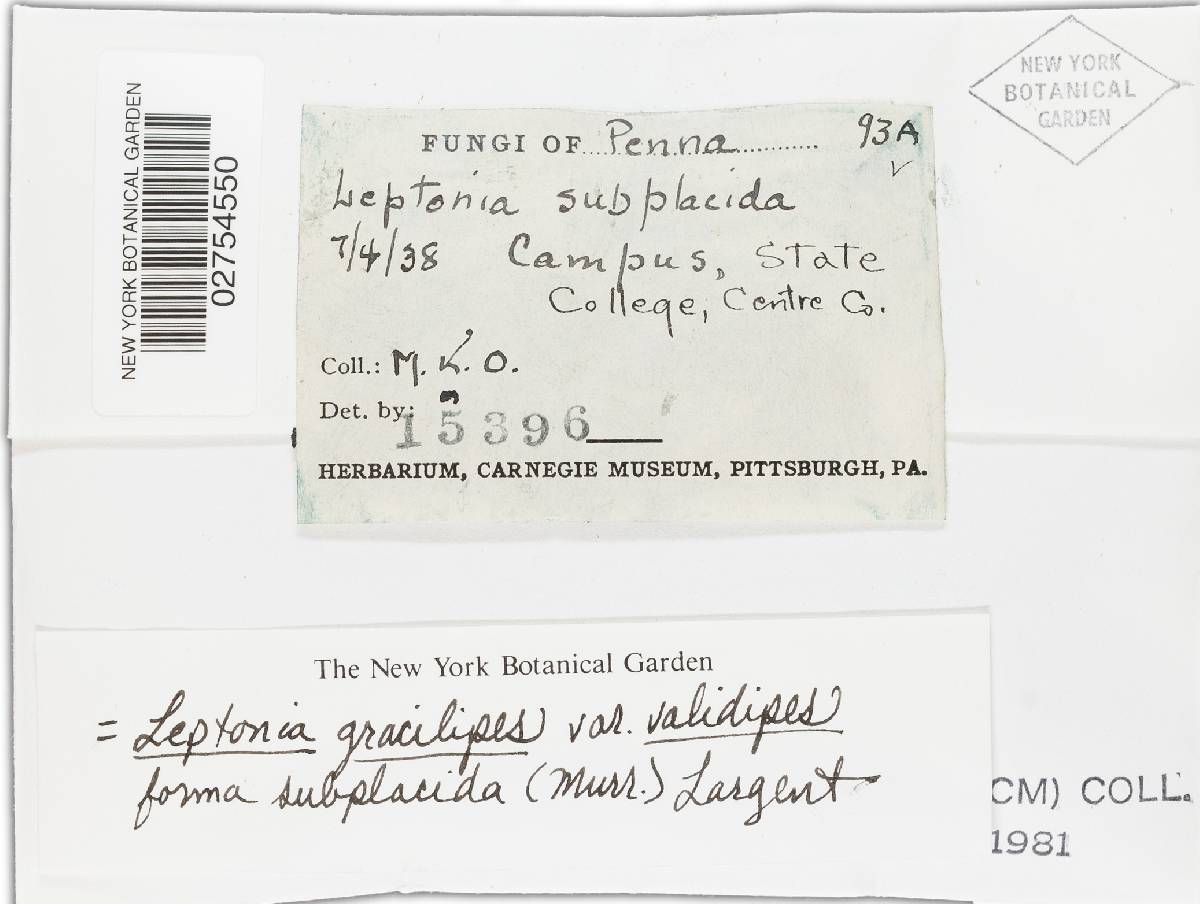 NEW YORK
BOTANICAL
GARDEN
NEW YORK BOTANICAL GARDEN
02754550
FUNGI OF Penna 93A
Leptonia subplacida
7/4/38 Campus, State
College, Centre Co.
Coll.: M. K. O.
Det. by:
15396
HERBARIUM, CARNEGIE MUSEUM, PITTSBURGH, PA.
The New York Botanical Garden
= Leptonia gracilipes var. validipes
forma subplacida (Murr.) Largent
CM) COLL.
1981